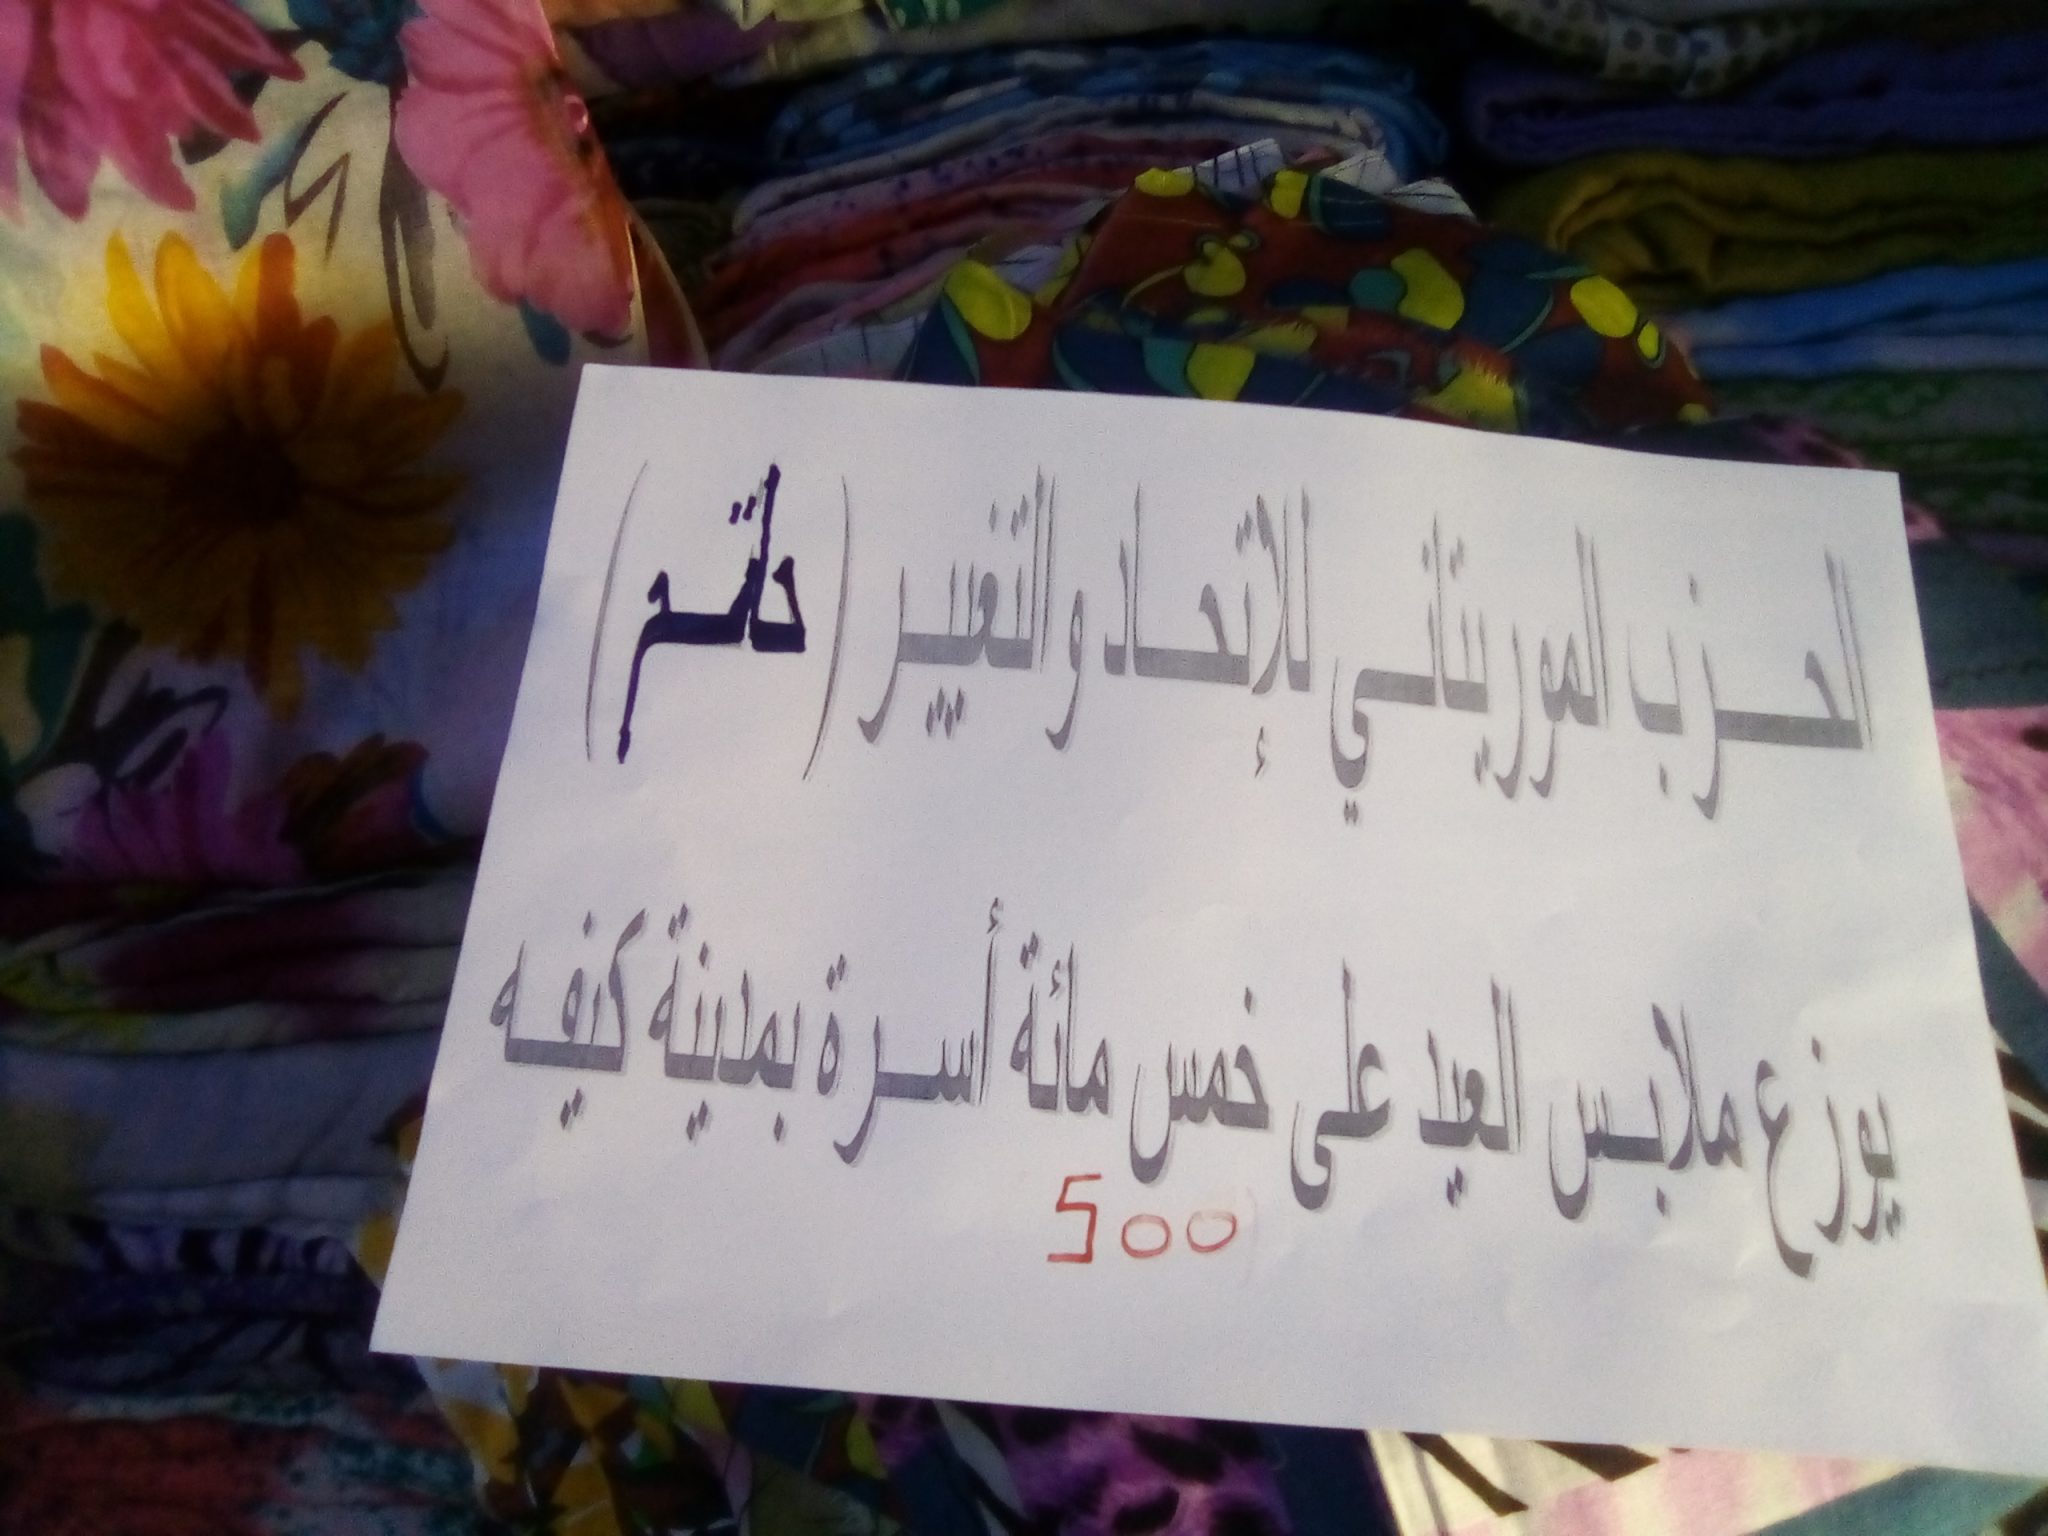 الحـــزب الموريتانـــي للإتحـــاد والتغييـــر (حاتم)
يوزع ملابس العيد على خمس مائة أسرة بمدينة كيفه
500